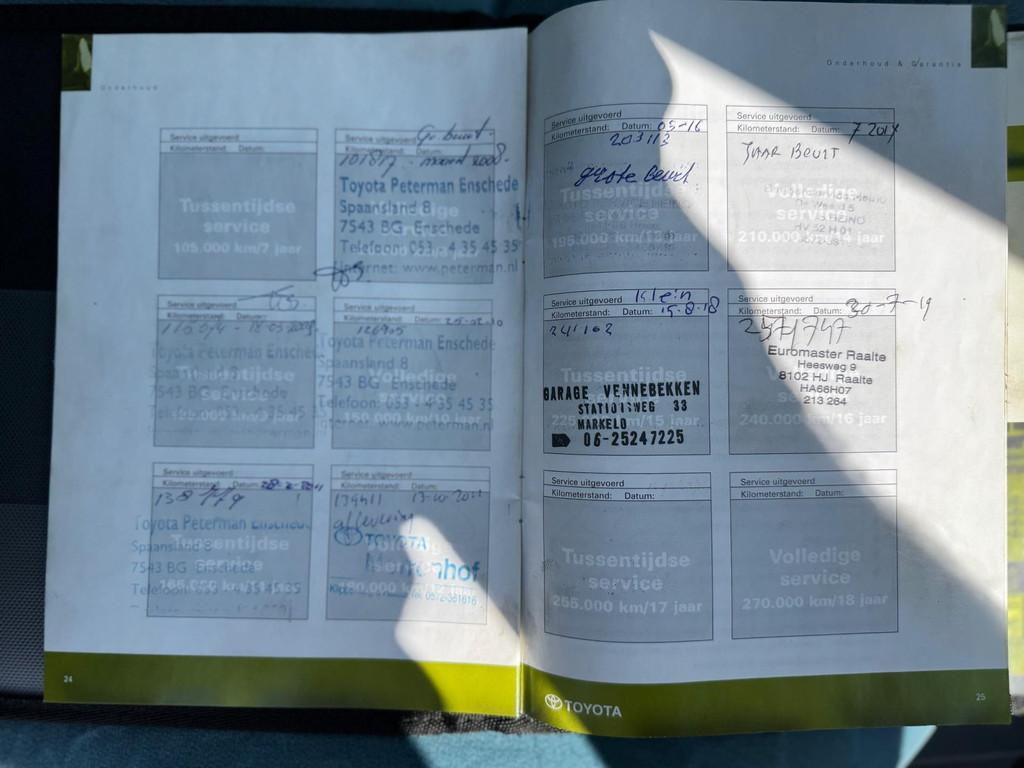 Onderhoud
Service uitgevoerd
Kilometerstand: Datum:
Tussentijdse
service
105.000 km/7 jaar
Service uitgevoerd Gr beurt.
Kilometerstand: Datum:
101817 - maart 2008.
Toyota Peterman Enschede
Spaansland 8
7543 BG Enschede
Telefoon: 053 - 4 35 45 35
Internet: www.peterman.nl
Service uitgevoerd
Kilometerstand: Datum:
Toyota Peterman Ensched
Tussentijdse
service
7543 BG Enschede
Service uitgevoerd
Kilometerstand: Datum: 25-02-10
Toyota Peterman Enschede
Spaansland 8
7543 BG Enschede
Volledige
service
Telefoon: 053 - 4 35 45 35
Internet: www.peterman.nl
Service uitgevoerd
Kilometerstand: Datum:
138779
Toyota Peterman Enschede
Spaansland 8
Tussentijdse
service
7543 BG Enschede
Telefoon: 053 - 4 35 45 35
165.000 km/11 jaar
Service uitgevoerd
Kilometerstand: Datum:
13-10-2011
aflevering
TOYOTA
180.000 km/12 jaar
Tel. 0572-361616
24
Onderhoud & Garantie
Service uitgevoerd
Kilometerstand: Datum: 05-16
203113
grote beurt
Tussentijdse
service
195.000 km/13 jaar
Service uitgevoerd
Kilometerstand: Datum: 7 2017
JAAR BEURT
Volledige
service
210.000 km/14 jaar
Service uitgevoerd Klein
Kilometerstand: Datum: 15-8-18
241102
Tussentijdse
GARAGE VENNEBEKKEN
STATIONSWEG 33
MARKELO
06-25247225
225.000 km/15 jaar
Service uitgevoerd
Kilometerstand: Datum: 30-7-19
2571747
Euromaster Raalte
Heesweg 9
8102 HJ Raalte
HA66H07
213 264
Volledige
service
240.000 km/16 jaar
Service uitgevoerd
Kilometerstand: Datum:
Tussentijdse
service
255.000 km/17 jaar
Service uitgevoerd
Kilometerstand: Datum:
Volledige
service
270.000 km/18 jaar
TOYOTA
25